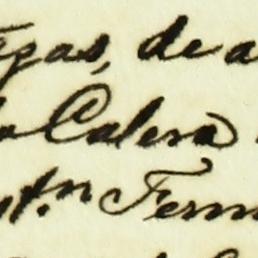 egas, de a
o Calera
nt.n Ferm